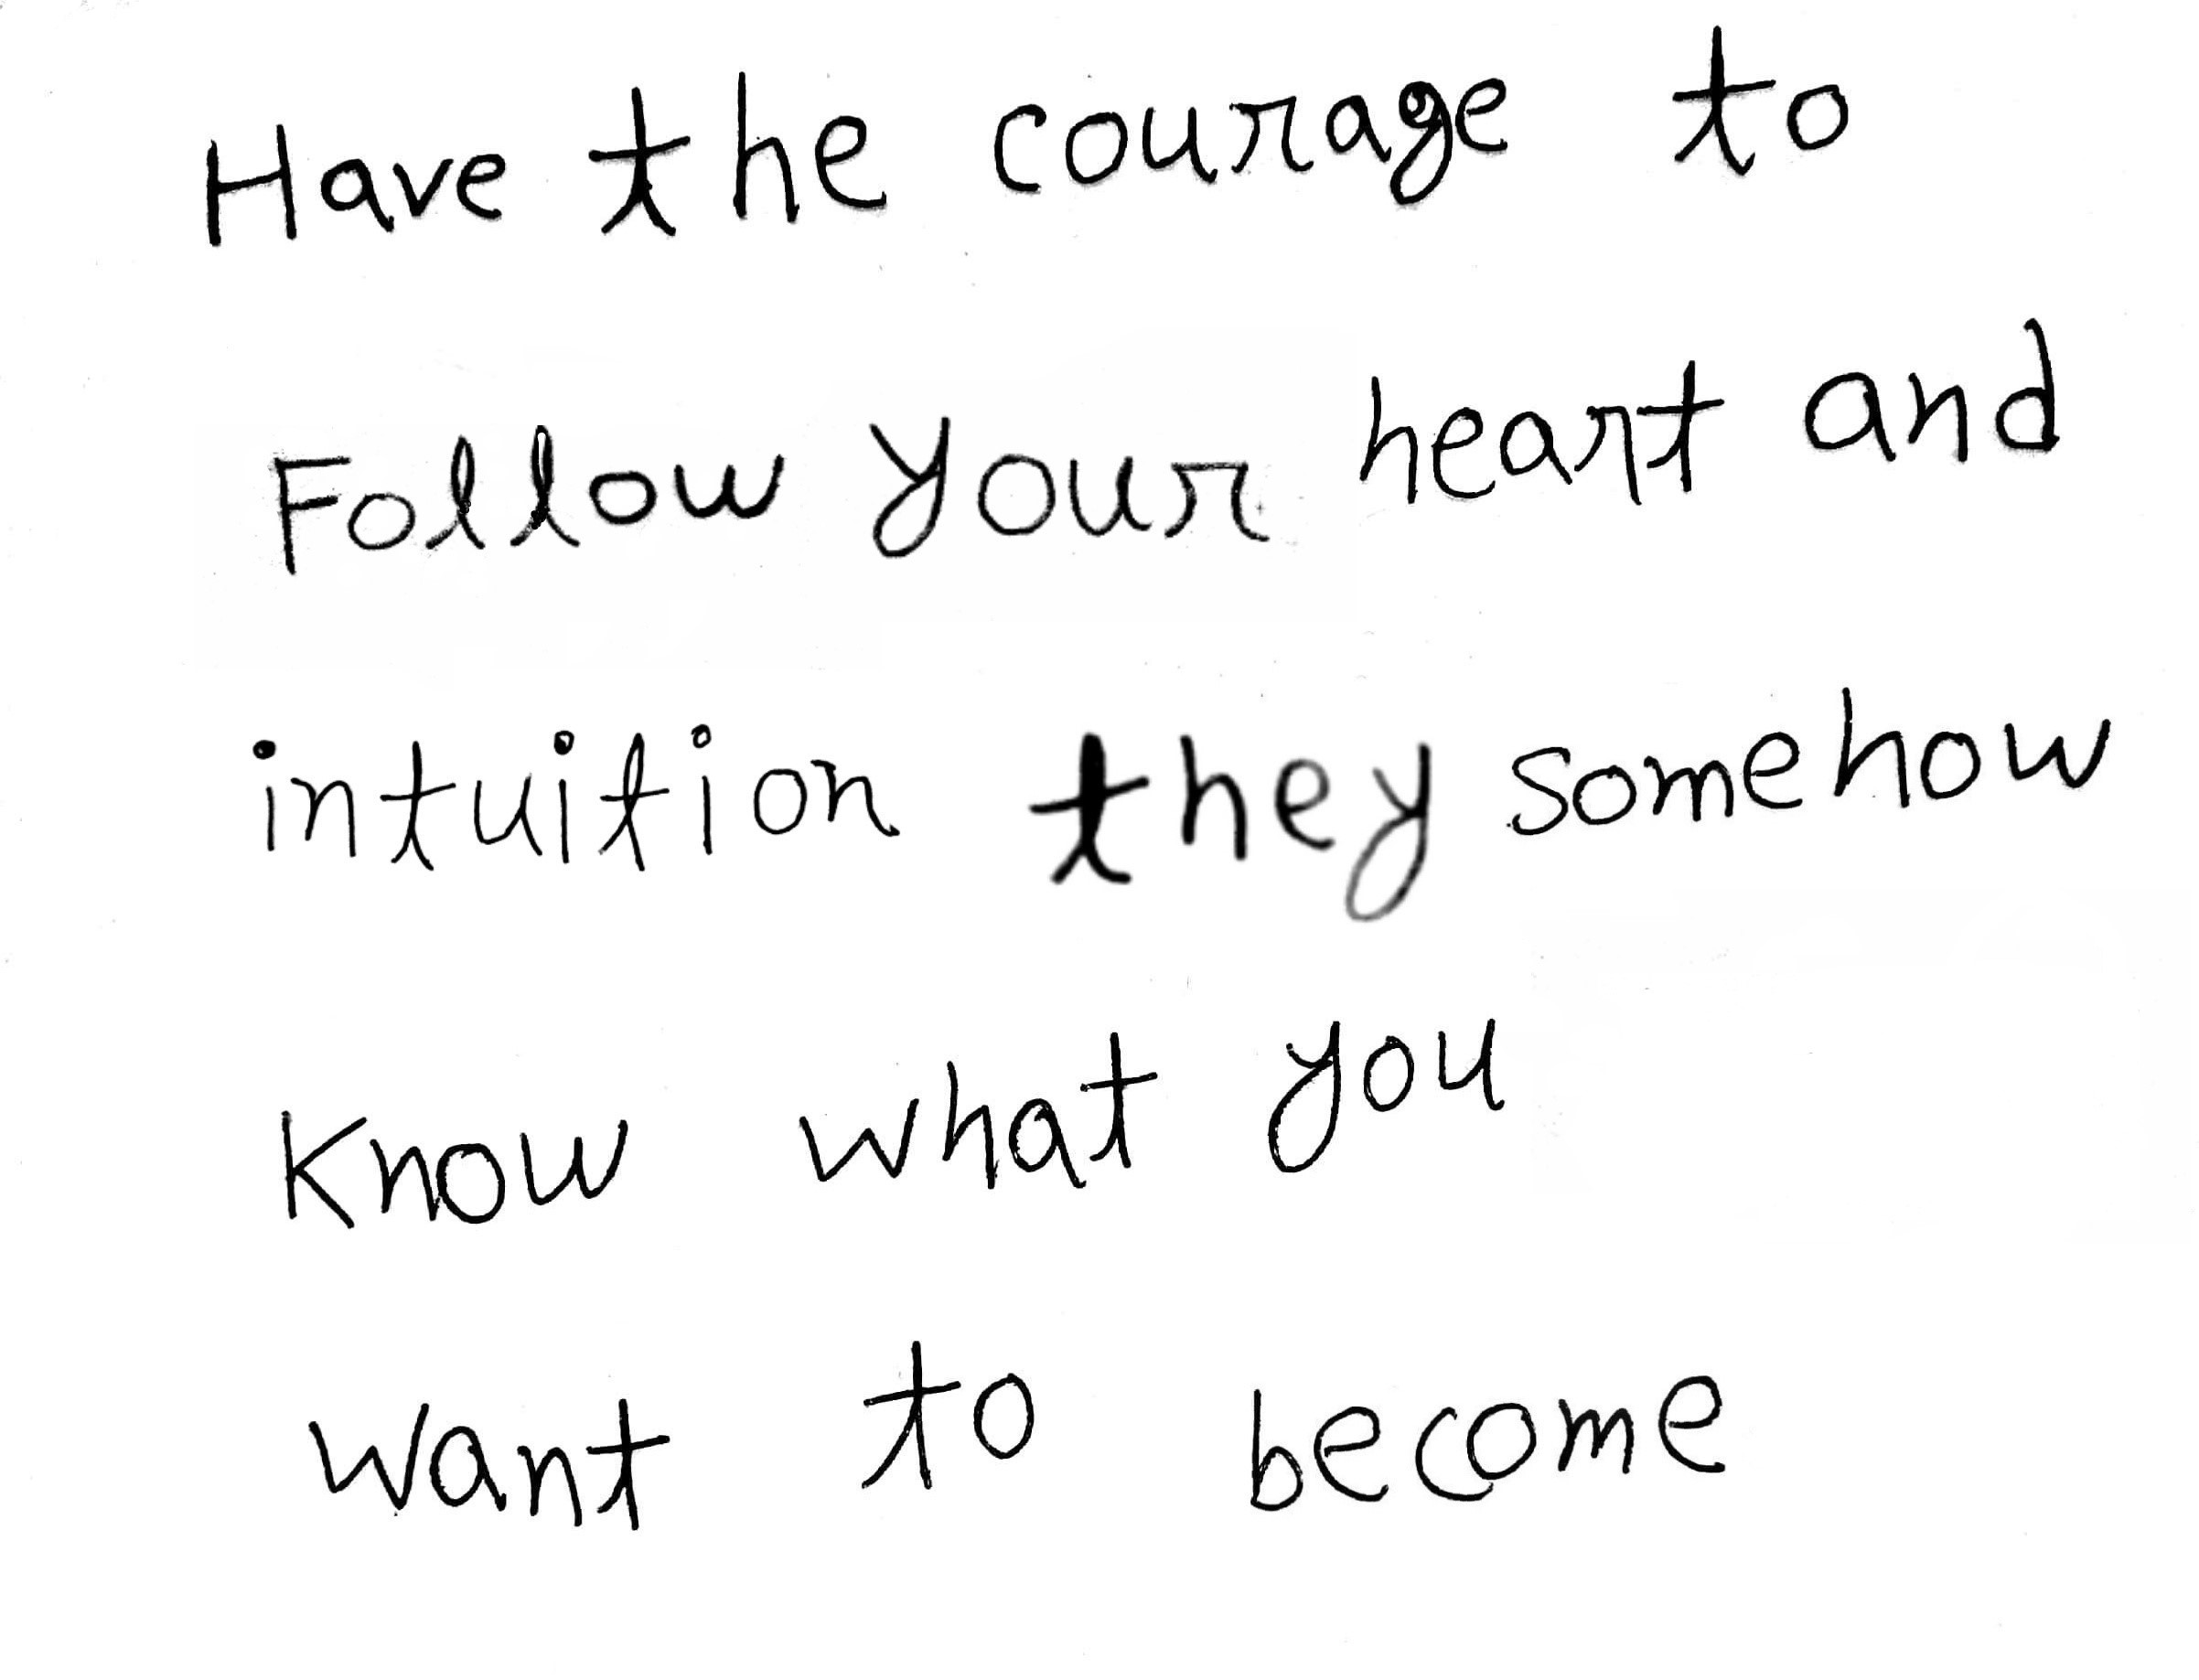 Have the courage to
Follow your heart and
intuition they somehow
Know what you
want to become